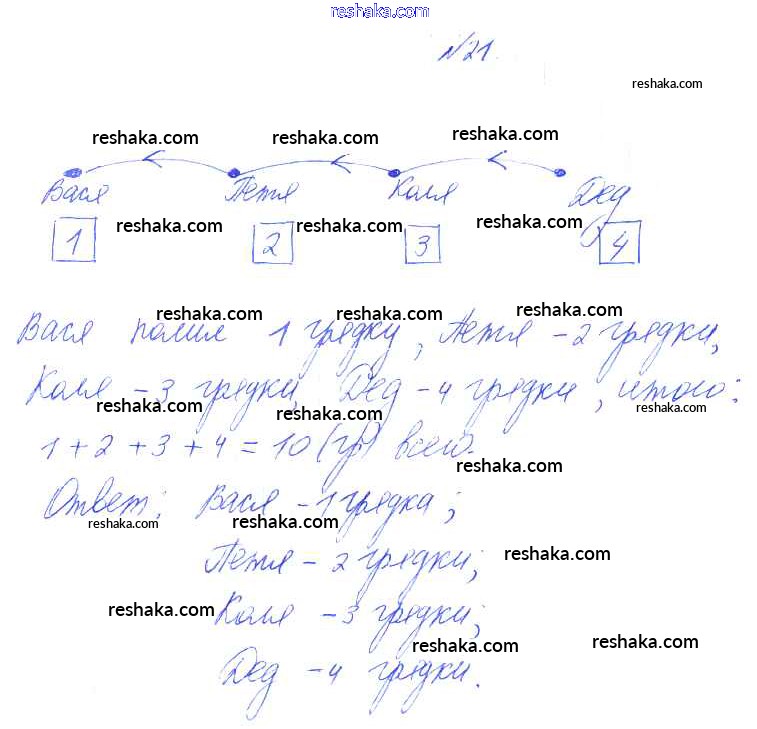 reshaka.com
№21.
reshaka.com
reshaka.com reshaka.com reshaka.com
Вася Петя Коля Дед
reshaka.com reshaka.com reshaka.com
1 2 3 4
reshaka.com reshaka.com reshaka.com
Вася полил 1 грядку, Петя - 2 грядки,
Коля - 3 грядки, Дед - 4 грядки, итого:
reshaka.com reshaka.com reshaka.com
1 + 2 + 3 + 4 = 10 (гр) всего.
reshaka.com
Ответ: Вася - 1 грядка;
reshaka.com reshaka.com
Петя - 2 грядки;
reshaka.com
Коля - 3 грядки;
reshaka.com
reshaka.com reshaka.com
Дед - 4 грядки.